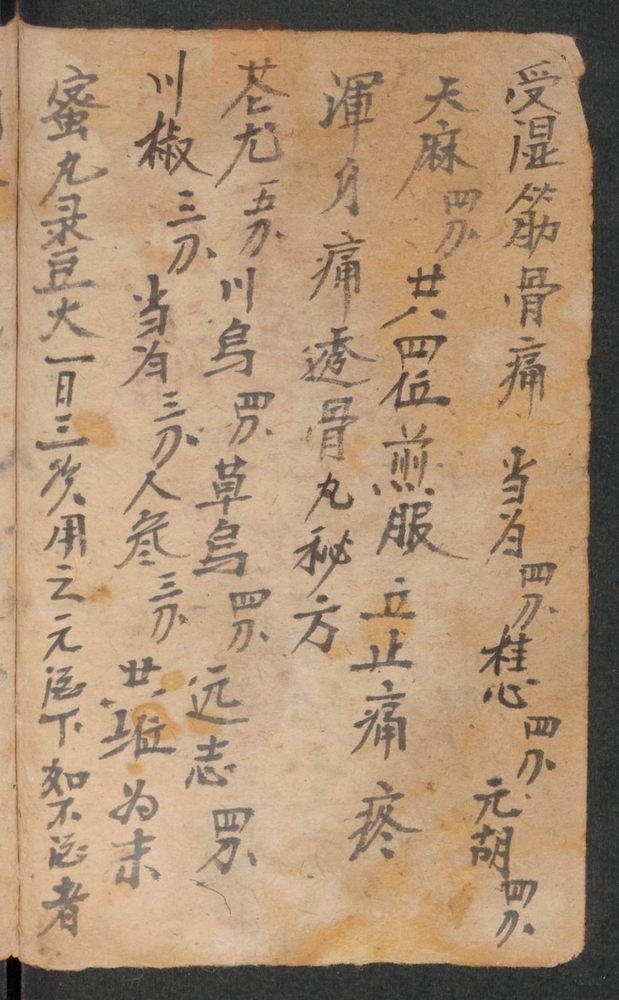 受湿筋骨痛 当为四分 桂心四分 元胡四分
天麻四分 共四位煎服立止痛疼
浑身痛透骨丸秘方
苍尤五分 川乌四分 草乌四分 远志四分
川椒三分 当为三分 人参三分 共 为末
蜜丸录豆大一日三次用之元 下如不 者